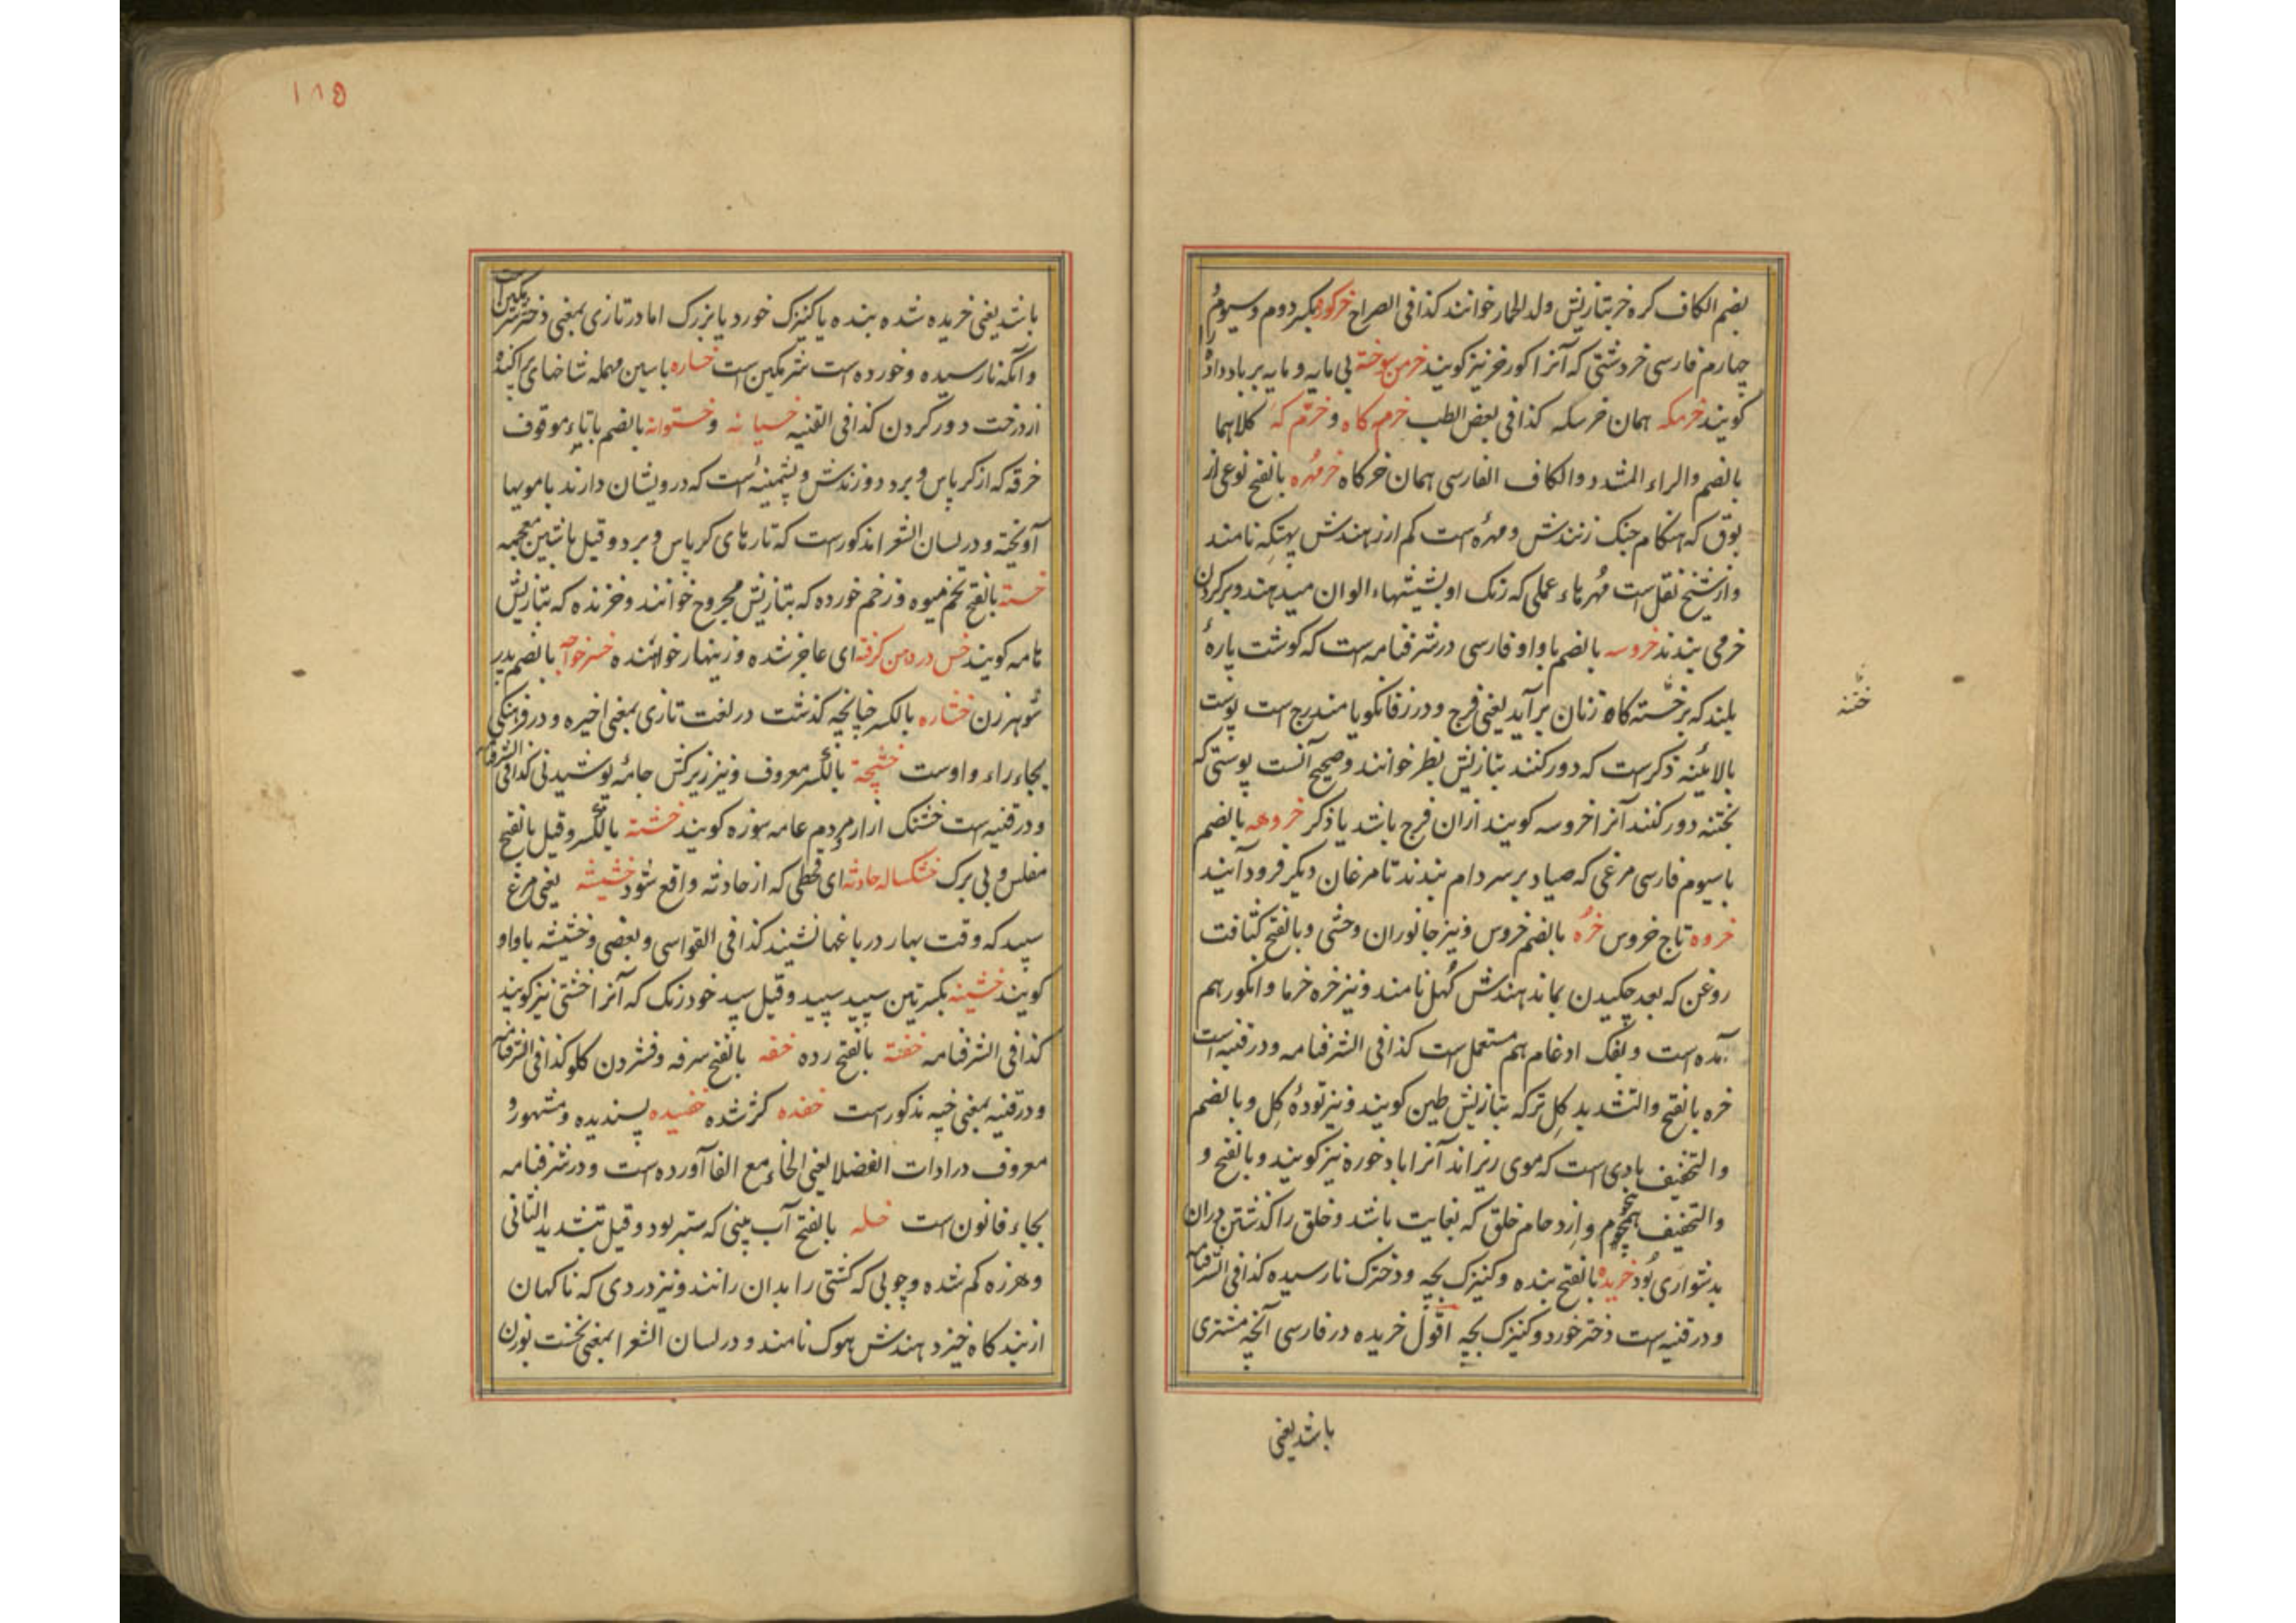 بضم الکاف کره خر بتازیش ولد الحمار خوانند کذا فی الصراح خرکوف بکسر دوم و سیوم و
چهارم فارسی خر دشتی که آنرا کور خر نیز کویند خرمن سوخته بی مایه و مایه بر باد داده را
کویند خرمکه همان خرسکه کذا فی بعض الطب خرم کاه و خرم که کلاهما
بالضم والراء المشدد والکاف الفارسی همان خرکاه خرمهره بالفتح نوعی از
بوق که هنکام جنک زنندش و مهرهٔ است کم ارز هندش نامند
و از شیخ نقل است مهرهاء عملی که رنک او بشیشهاء الوان میدهند و بر کردن
خر می بندند خروسه بالضم با واو فارسی در شرفنامه است که کوشت پارهٔ
بلند که بر ختنه کاه زنان برآید یعنی فرج و در زفانکویا مندرج است پوست
بالائینه ذکرست که دور کنند بتازیش بظر خوانند و صحیح آنست پوستی که
بختنه دور کنند آنرا خروسه کویند ازان فرج باشد یا ذکر خروهه بالضم
با سیوم فارسی مرغی که صیاد بر سر دام بندند تا مرغان دیکر فرود آیند
خروه تاج خروس خره بالضم خروس و نیز جانوران وحشی و بالفتح کثافت
روغن که بعد چکیدن بماند هندش کهل نامند و نیز خره خرما و انکور هم
آمده است و بفک ادغام هم مستعمل است کذا فی الشرفنامه و در قنیه است
خره بالفتح والتشدید کل تر که بتازیش طین کویند و نیز تودهٔ کل و بالضم
والتخفیف بادی است که موی ریزاند آنرا باد خوره نیز کویند و بالفتح و
والتخفیف هجوم و ازدحام خلق که بغایت باشد و خلق را کذشتن دران
بدشواری بود خریده بالفتح بنده و کنیزک بچه و دخترک نارسیده کذا فی الشرفنامه
و در قنیه است دختر خورد و کنیزک بچه اقول خریده در فارسی آنچه مشتری
باشد یعنی
ختنه
۱۸۵
باشد یعنی خریده شده بنده یا کنیزک خورد یا بزرک اما در تازی بمعنی دختر شرمکین است
و آنکه نارسیده و خورده است شرمکین است خساره با سین مهمله شاخهای پراکنده
از درخت دور کردن کذا فی القنیه خسیانه و خستوانه بالضم با تاء موقوف
خرقه که از کرپاس و برد دوزندش و پشمینهٔ است که درویشان دارند با مویها
آویخته و در لسان الشعرا مذکورست که تارهای کرپاس و برد و قیل با شین معجمه
خسته بالفتح تخم میوه و زخم خورده که بتازیش مجروح خوانند و خزنده که بتازیش
هامه کویند خس در دهن کرفته ای عاجز شده و زینهار خواهنده خسر خواجه بالضم پدر
شوهر زن خشاره بالکسر چنانچه کذشت در لغت تازی بمعنی اخیره و در فرهنکی
بجاء راء واوست خشیجه بالکسر معروف و نیز زیر کش جامه پوشیدنی کذا فی الشرفنامه
و در قنیه است خشتک ازار مردم عامه سوزه کویند خشته بالکسر و قیل بالفتح
مفلس و بی برک خشکساله حادثه ای قحطی که از حادثه واقع شود خشیشه یعنی مرغ
سپید که وقت بهار در باغها نشیند کذا فی القواسی و بعضی وخشیشه با واو
کویند خشینه بکسرتین سپید سپید و قیل سپید خود رنک که آنرا خشتی نیز کویند
کذا فی الشرفنامه خفته بالفتح رده خفه بالفتح سرفه و فشردن کلو کذا فی الشرفنامه
و در قنیه بمعنی خپه مذکورست خفده کژ شده خفیده پسندیده و مشهور و
معروف در ادات الفضلا یعنی الخاء مع الفا آورده است و در شرفنامه
بجاء فا نون است خله بالفتح آب بینی که ستبر بود و قیل بتشدید الثانی
و هرزه کم شده و چوبی که کشتی را بدان رانند و نیز دردی که ناکهان
از بندکاه خیزد هندش هوک نامند و در لسان الشعرا بمعنی نخست بوزن